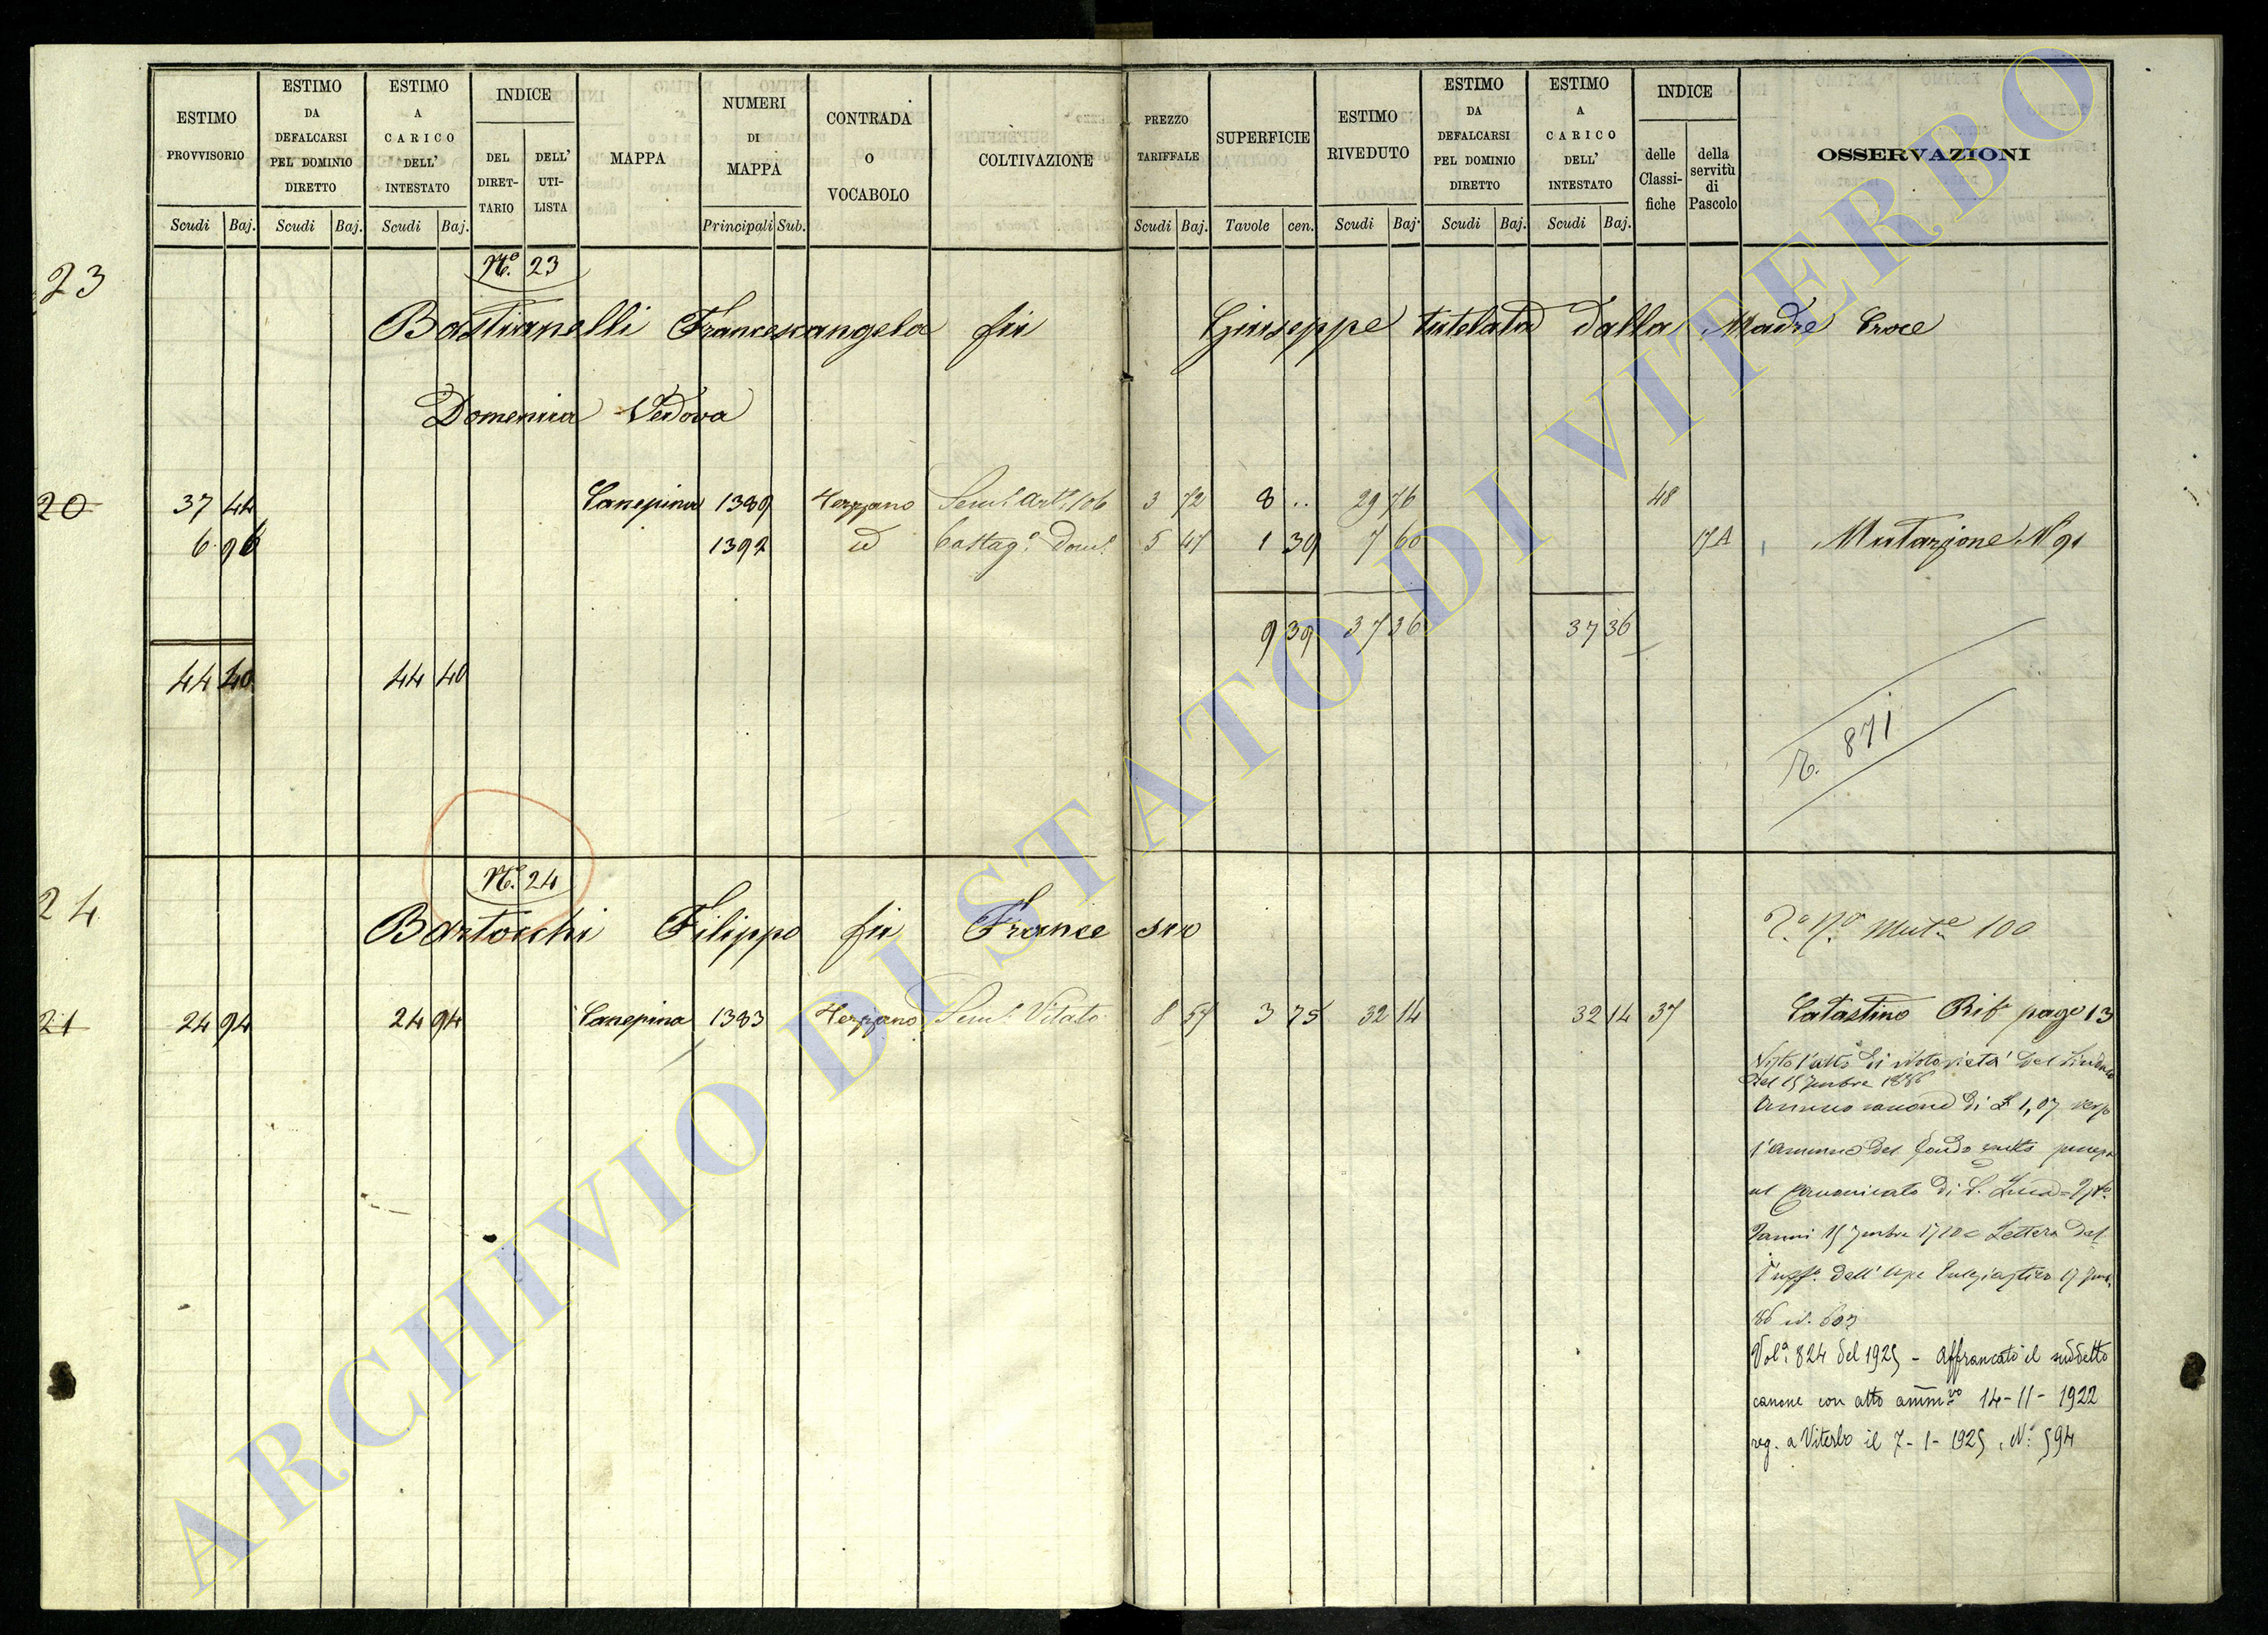 ESTIMO PROVVISORIO
ESTIMO DA DEFALCARSI PEL DOMINIO DIRETTO
ESTIMO A CARICO DELL' INTESTATO
INDICE
DEL DIRET-TARIO
DELL' UTI-LISTA
MAPPA
NUMERI DI MAPPA
CONTRADA O VOCABOLO
COLTIVAZIONE
PREZZO TARIFFALE
SUPERFICIE
ESTIMO RIVEDUTO
ESTIMO DA DEFALCARSI PEL DOMINIO DIRETTO
ESTIMO A CARICO DELL' INTESTATO
INDICE
delle Classi-fiche
della servitù di Pascolo
OSSERVAZIONI
Scudi Baj. Scudi Baj. Scudi Baj. Principali Sub. Scudi Baj. Tavole cen. Scudi Baj. Scudi Baj. Scudi Baj.
23
N.° 23
Bastianelli Francescangela fu Giuseppe tutelata dalla Madre Croce
Domenica Vedova
20 37 44 Canepina 1389 Terzano Sem.° Art.° 106 3 72 8 .. 29 76 48
6 96 1392 id Castag.° Dom.° 5 47 1 39 7 60 17 A Mutazione N 91
9 39 37 36 37 36
44 40 44 40
R. 871
24
N.° 24
Bartocchi Filippo fu Francesco
N.° Mut.e 100
21 24 94 24 94 Canepina 1383 Terzano Sem.° Vitato 8 57 3 75 32 14 32 14 37 Catastino Rif pag 13
Visto l'atto di notorietà del Sindaco
del 15 7mbre 1886
annuo canone di £ 1,07 verso
l'ammino del fondo culto
al Canonicato di S. Luca
15 7mbre Lettera del
dell'
86 id.
Vol.a 824 del 1925 - Affrancato il suddetto
canone con atto amm.vo 14-11-1922
reg. a Viterbo il 7-1-1925, N.° 594
ARCHIVIO DI STATO DI VITERBO